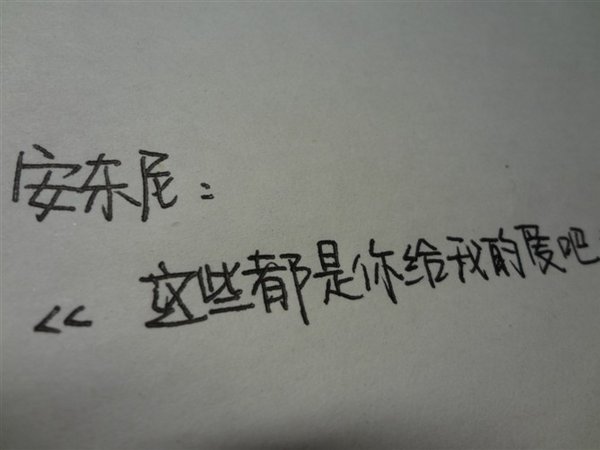 安东尼：
《 这些都是你给我的爱吧